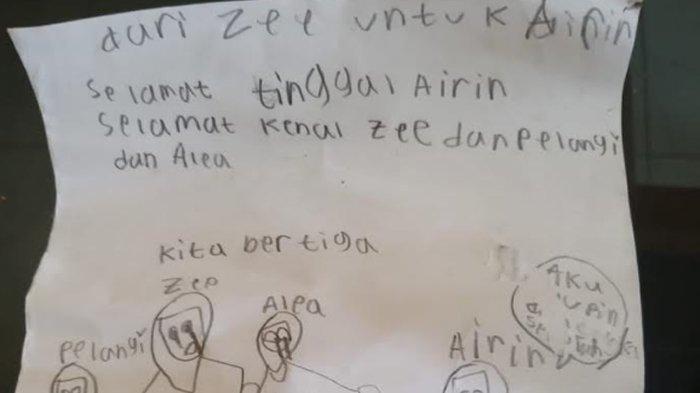 dari Zee untuk Airin
Selamat tinggal Airin
Selamat kenal Zee dan pelangi
dan Alea
Kita bertiga
Zee
Alea
pelangi
Airin
AKU